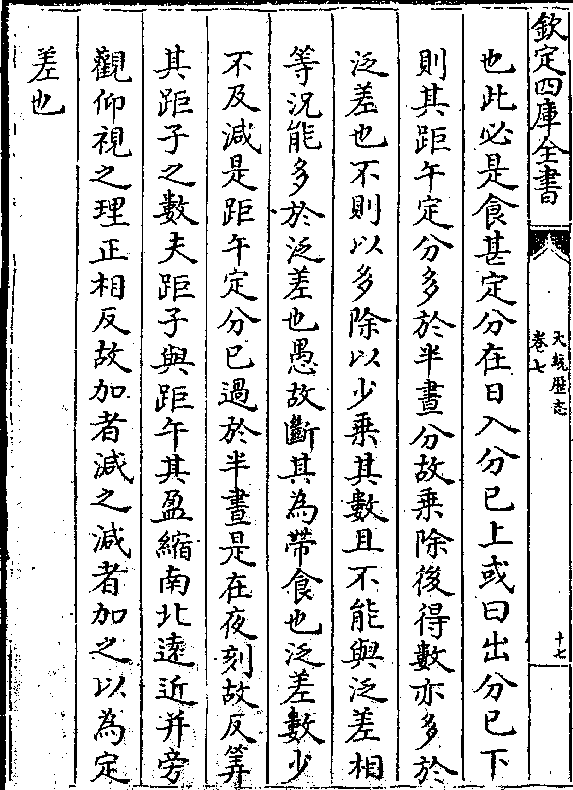 欽定四庫全書
大統歴志
卷七
十七
也此必是食甚定分在日入分已上或日出分已下
則其距午定分多於半晝分故乘除後得數亦多於
泛差也不則以多除以少乘其數且不能與泛差相
等況能多於泛差也愚故斷其為帶食也泛差數少
不及減是距午定分已過於半晝是在夜刻故反筭
其距子之數夫距子與距午其盈縮南北逺近并旁
觀仰視之理正相反故加者減之減者加之以為定
差也